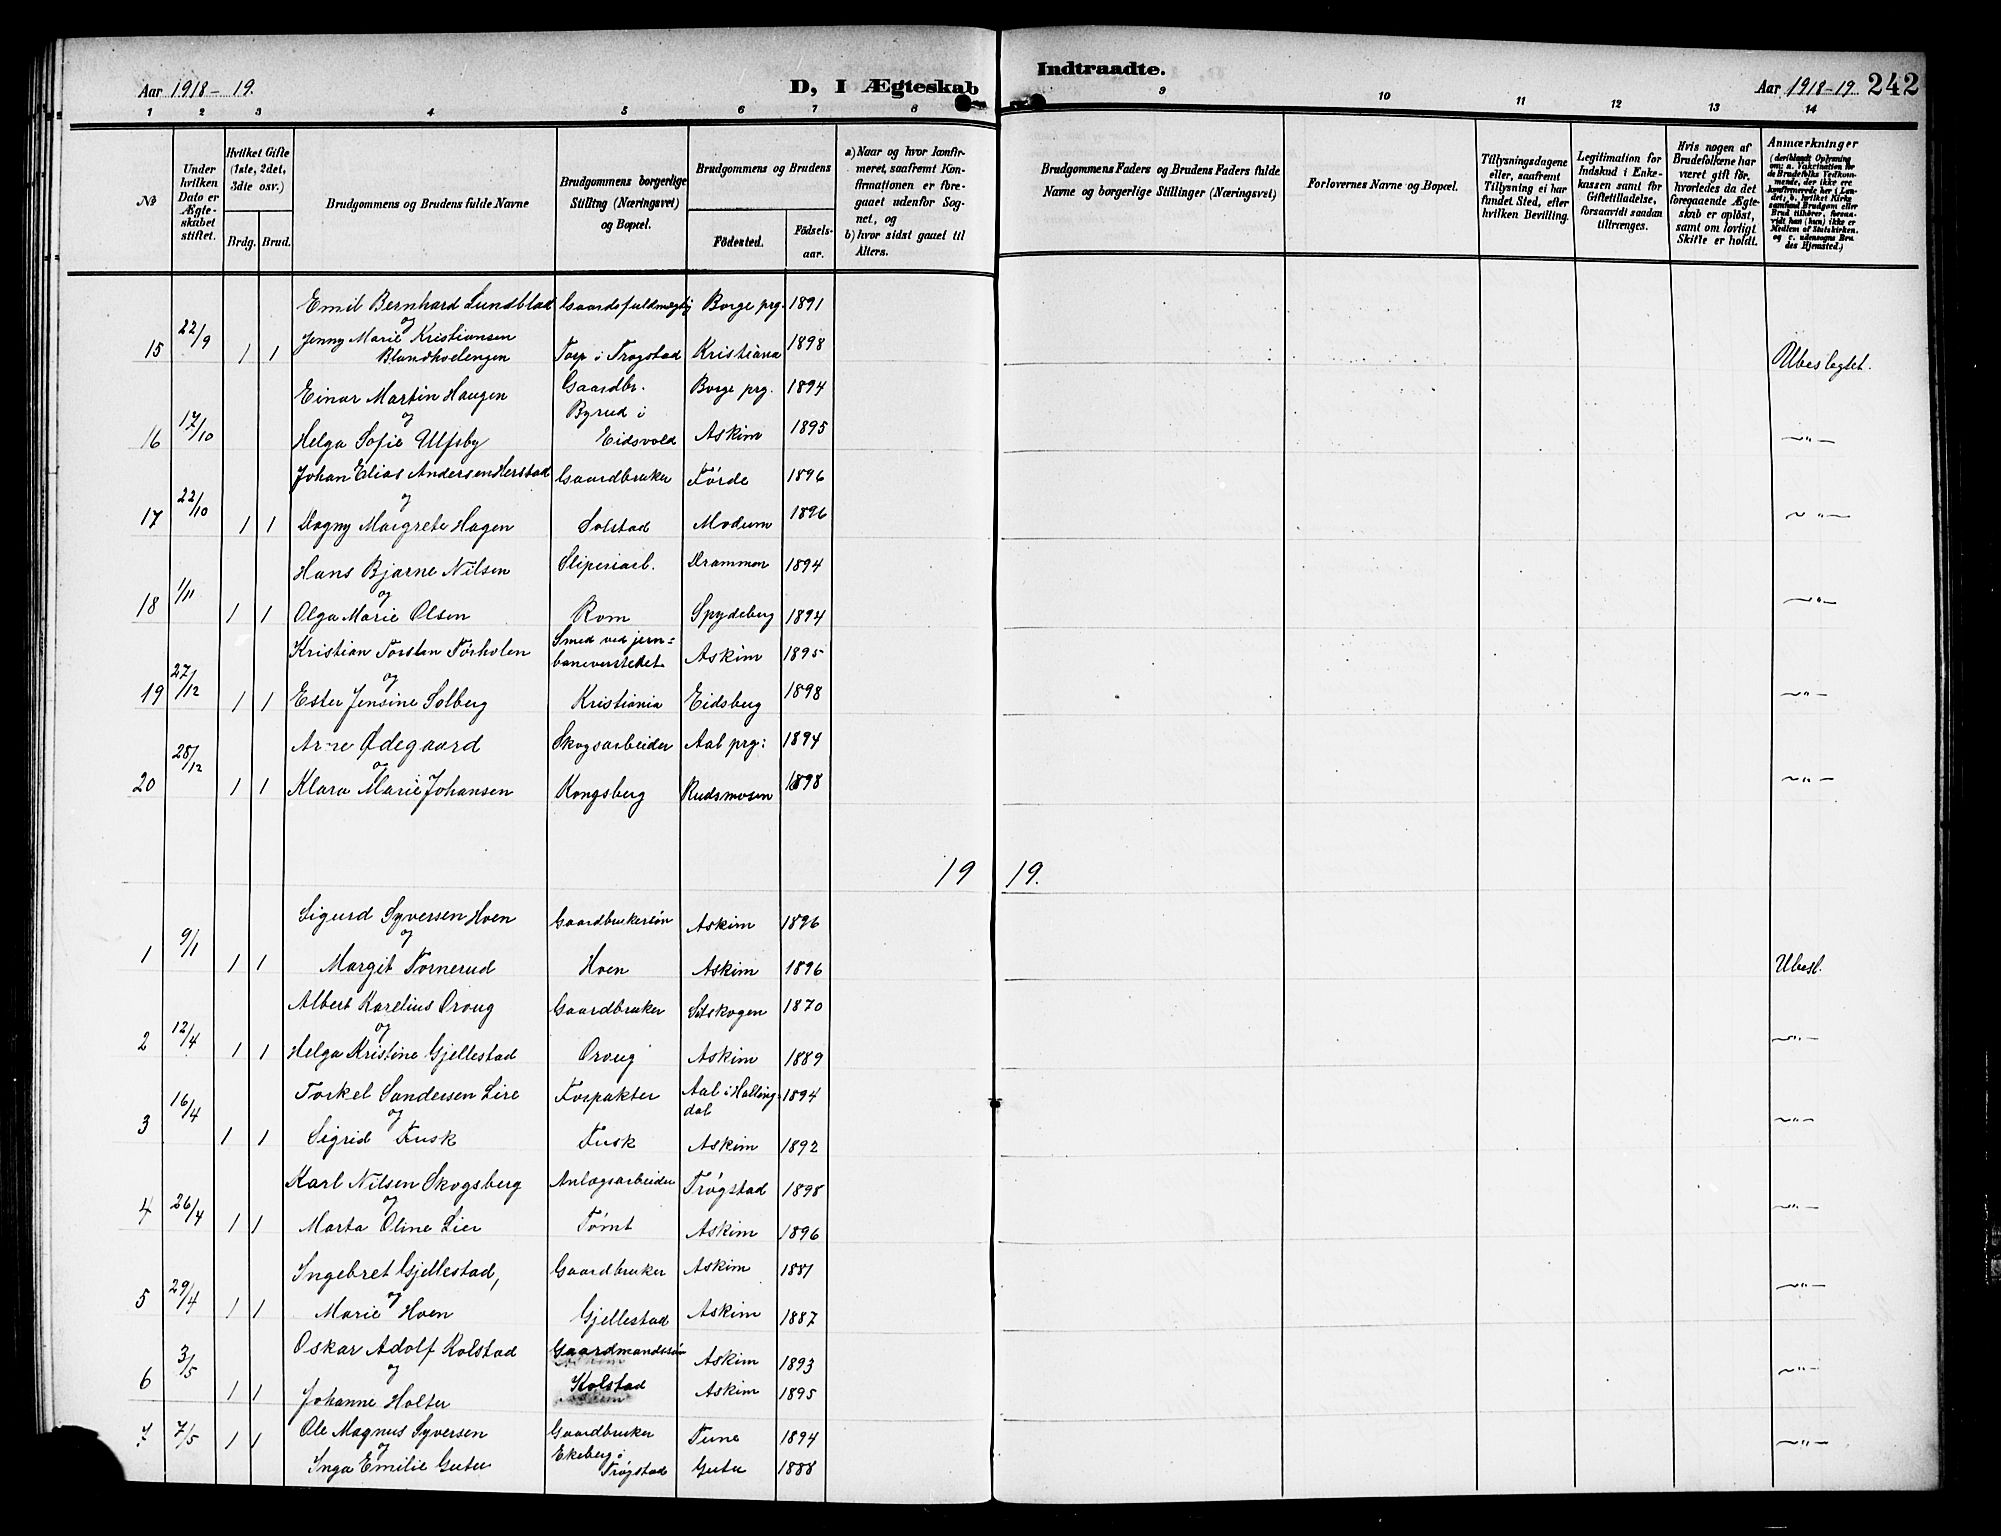 Aar 1918-19.
D, I Ægteskab
Indtraadte.
Aar 1918-19 242
1 2 3 4 5 6 7 8 9 10 11 12 13 14
No
Under hvilken Dato er Ægteskabet stiftet.
Hvilket Gifte (1ste, 2det, 3die osv.)
Brdg. Brud.
Brudgommens og Brudens fulde Navne
Brudgommens borgerlige Stilling (Næringsvei) og Bopæl.
Brudgommens og Brudens
Födested. Födselsaar.
a) Naar og hvor konfirmeret, saafremt Konfirmationen er foregaaet udenfor Sognet, og
b) hvor sidst gaaet til Alters.
Brudgommens Faders og Brudens Faders fulde Navne og borgerlige Stillinger (Næringsvei)
Forlovernes Navne og Bopæl.
Tillysningsdagene eller, saafremt Tillysning ei har fundet Sted, efter hvilken Bevilling.
Legitimation for Indskud i Enkekassen samt for Giftetilladelse, forsaavidt saadan tiltrænges.
Hvis nogen af Brudefolkene har været gift för, hvorledes da det foregaaende Ægteskab er oplöst, samt om lovligt Skifte er holdt.
Anmærkninger
Emil Bernhard Lundblad Gaardsfuldmægtig Borge prg. 1891
22/9 og
Jenny Marie Kristiansen 1898
15 1 1 Blandkvelengen Torp i Trøgstad Kristiania Ubeslegtet.
Einar Martin Haugen Gaardbr. Borge prg. 1894
17/10 og Byrud i
16 Helga Sofie Ulfsby Eidsvold Askim 1895 —"—
Johan Elias Andersen Herstad Gaardbruker Førde 1896
22/10 og
17 1 1 Dagny Margrete Hagen Solstad Modum 1896 —"—
Hans Bjarne Nilsen Sliperiarb. Drammen 1894
1/11 og
18 1 1 Olga Marie Olsen Rom Spydeberg 1894 —"—
Kristian Torstan Torholen Smed ved jern= Askim 1895
27/12 og baneverstedet
19 1 1 Ester Jensine Solberg Kristiania Eidsberg 1898 —"—
Arne Ødegaard Skogsarbeider Aal prg: 1894
28/12 og
20 1 1 Klara Marie Johansen Kongsberg Rudsmosen 1898 —"—
19 19.
Sigurd Syversen Hoen Gaardbrukersøn Askim 1896
9/1 og
1 1 1 Margit Tornerud Hoen Askim 1896 Ubesl.
Albert Karelius Oroug Gaardbruker Setskogen 1870
12/4 og
2 1 1 Helga Kristine Gjellestad Oroug Askim 1889 —"—
Torkel Sandersen Lire Forpakter Aal i Halling- 1894
16/4 og dal
3 1 1 Sigrid Fusk Fusk Askim 1892 —"—
Karl Nilsen Skogsberg Anlægsarbeider Trøgstad 1898
26/4 og
4 1 1 Marta Oline Lier Tømt Askim 1896 —"—
Ingebret Gjellestad, Gaardbruker Askim 1881
29/4 og
5 1 1 Marie Hoen Gjellestad Askim 1887 —"—
Oskar Adolf Kolstad Gaardmandssøn Askim 1893
3/5 og
6 1 1 Johanne Holter Kolstad Askim 1895 —"—
7 7/5 1 1 Ole Magnus Syversen Gaardbruker Tune 1894 —"—
og Ekeberg i
Inga Emilie Guter Trøgstad Guter 1888